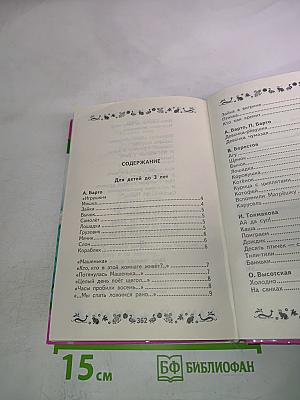 СОДЕРЖАНИЕ
Для детей до 3 лет
А. Барто
«Игрушки»
Мишка 4
Зайка 4
Бычок
Самолёт
Лошадка
Грузовик
Мячик
Слон
Кораблик
«Машенька»
«Кто, кто в этой комнате живёт?..» 7
«Потянулась Машенька...» 7
«Целый день поёт щегол...» 7
«Часы пробили восемь...» 8
«...Мы спать ложимся рано...» 9
362
Зайка в витрине
Птичка
Кто как кричит
А. Барто, П. Барто
Девочка-рёвушка
Девочка чумазая
В. Берестов
Агу
Щенок
Бычок
Лошадка
Коровушка
Котёнок
Курица с цыплятами
Котофей
Вспомнили Матрёшку
Карусель
И. Токмакова
Ай да суп!
Каша
Поиграем
Дождик
Десять птичек
Тили-тили
Баиньки
О. Высотская
Холодно
На санках
15 см
БФ БИБЛИОФАН